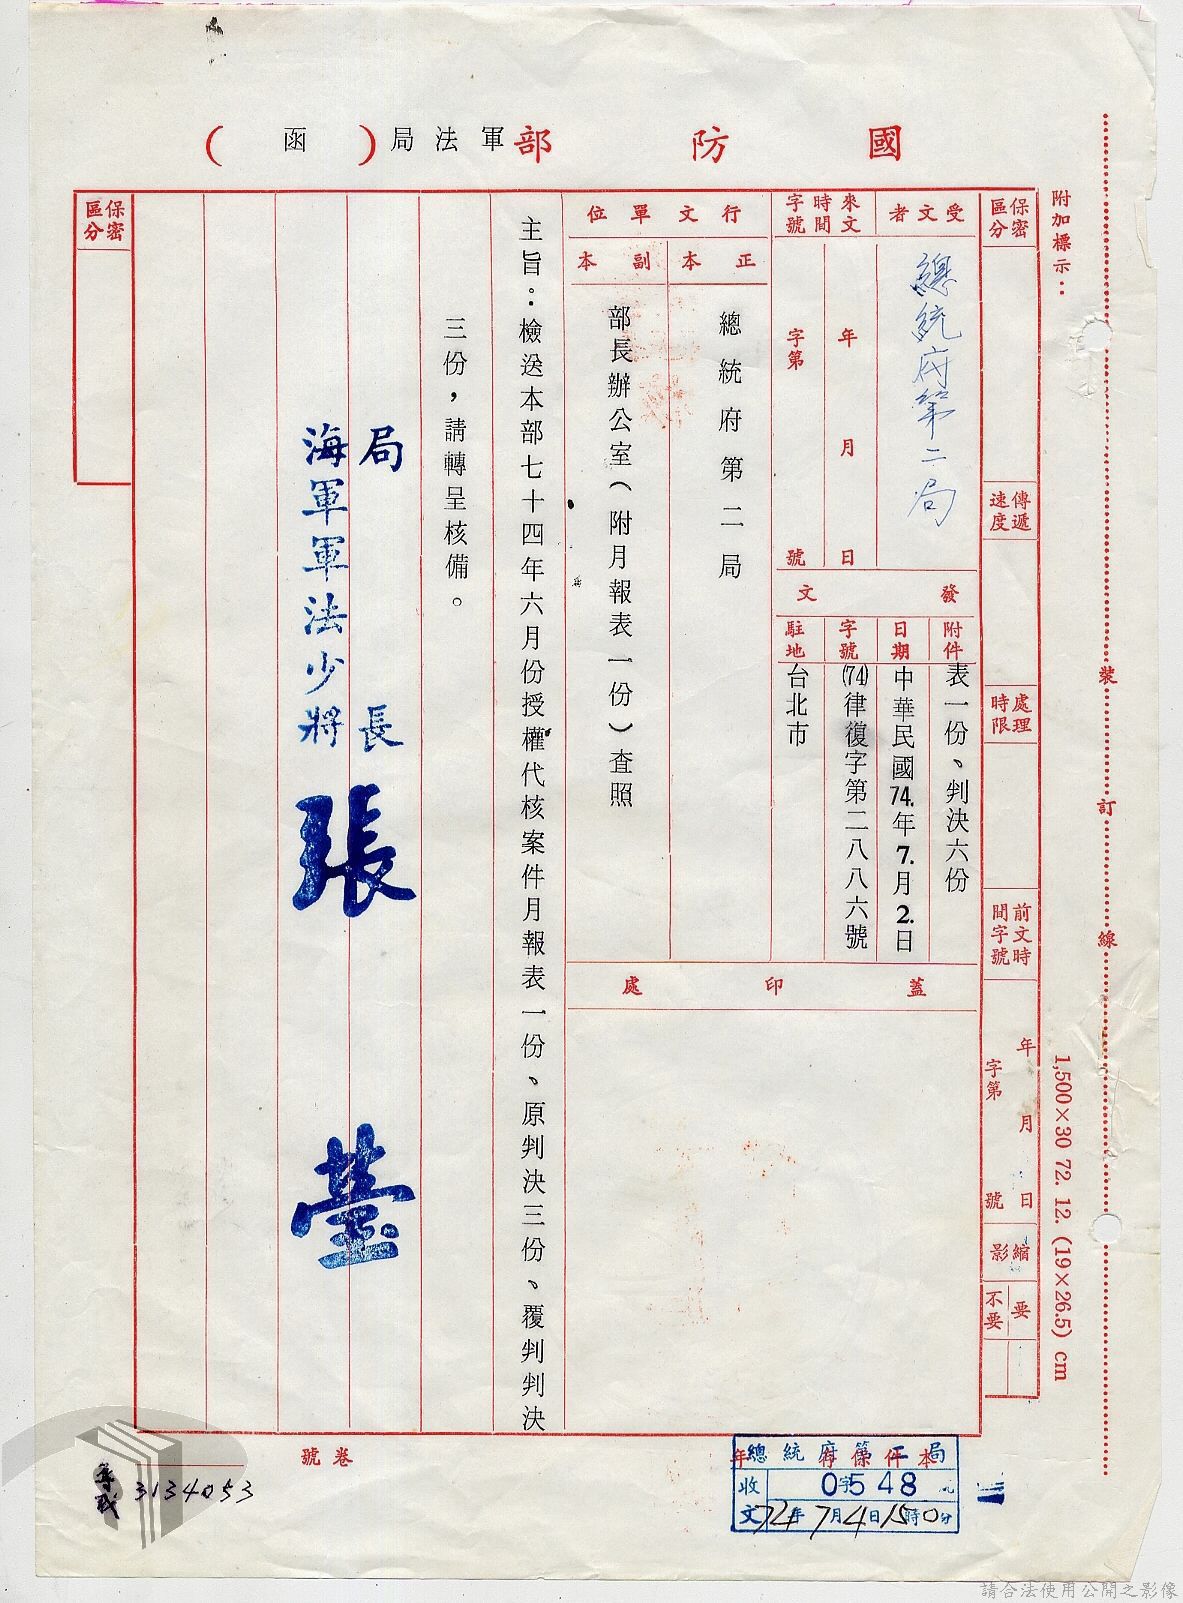 國防部軍法局(函)
附加標示：
裝
訂
線
1,500×30 72. 12. (19×26.5) cm
保密區分
傳遞速度
處理時限
前文時間字號
年 月 日
字第 號
縮影
要
不要
受文者
總統府第二局
來文時間字號
年 月 日
字第 號
發文
附件
表一份、判決六份
日期
中華民國74.年7.月2.日
字號
(74)律復字第二八八六號
駐地
台北市
行文單位
正本
總統府第二局
副本
部長辦公室（附月報表一份）查照
蓋印處
主旨：檢送本部七十四年六月份授權代核案件月報表一份、原判決三份、覆判判決
三份，請轉呈核備。
局長
海軍軍法少將
張
保密區分
卷號
3134053
總統府第二局
收文
0字548
74年7月4日15時0分
請合法使用公開之影像